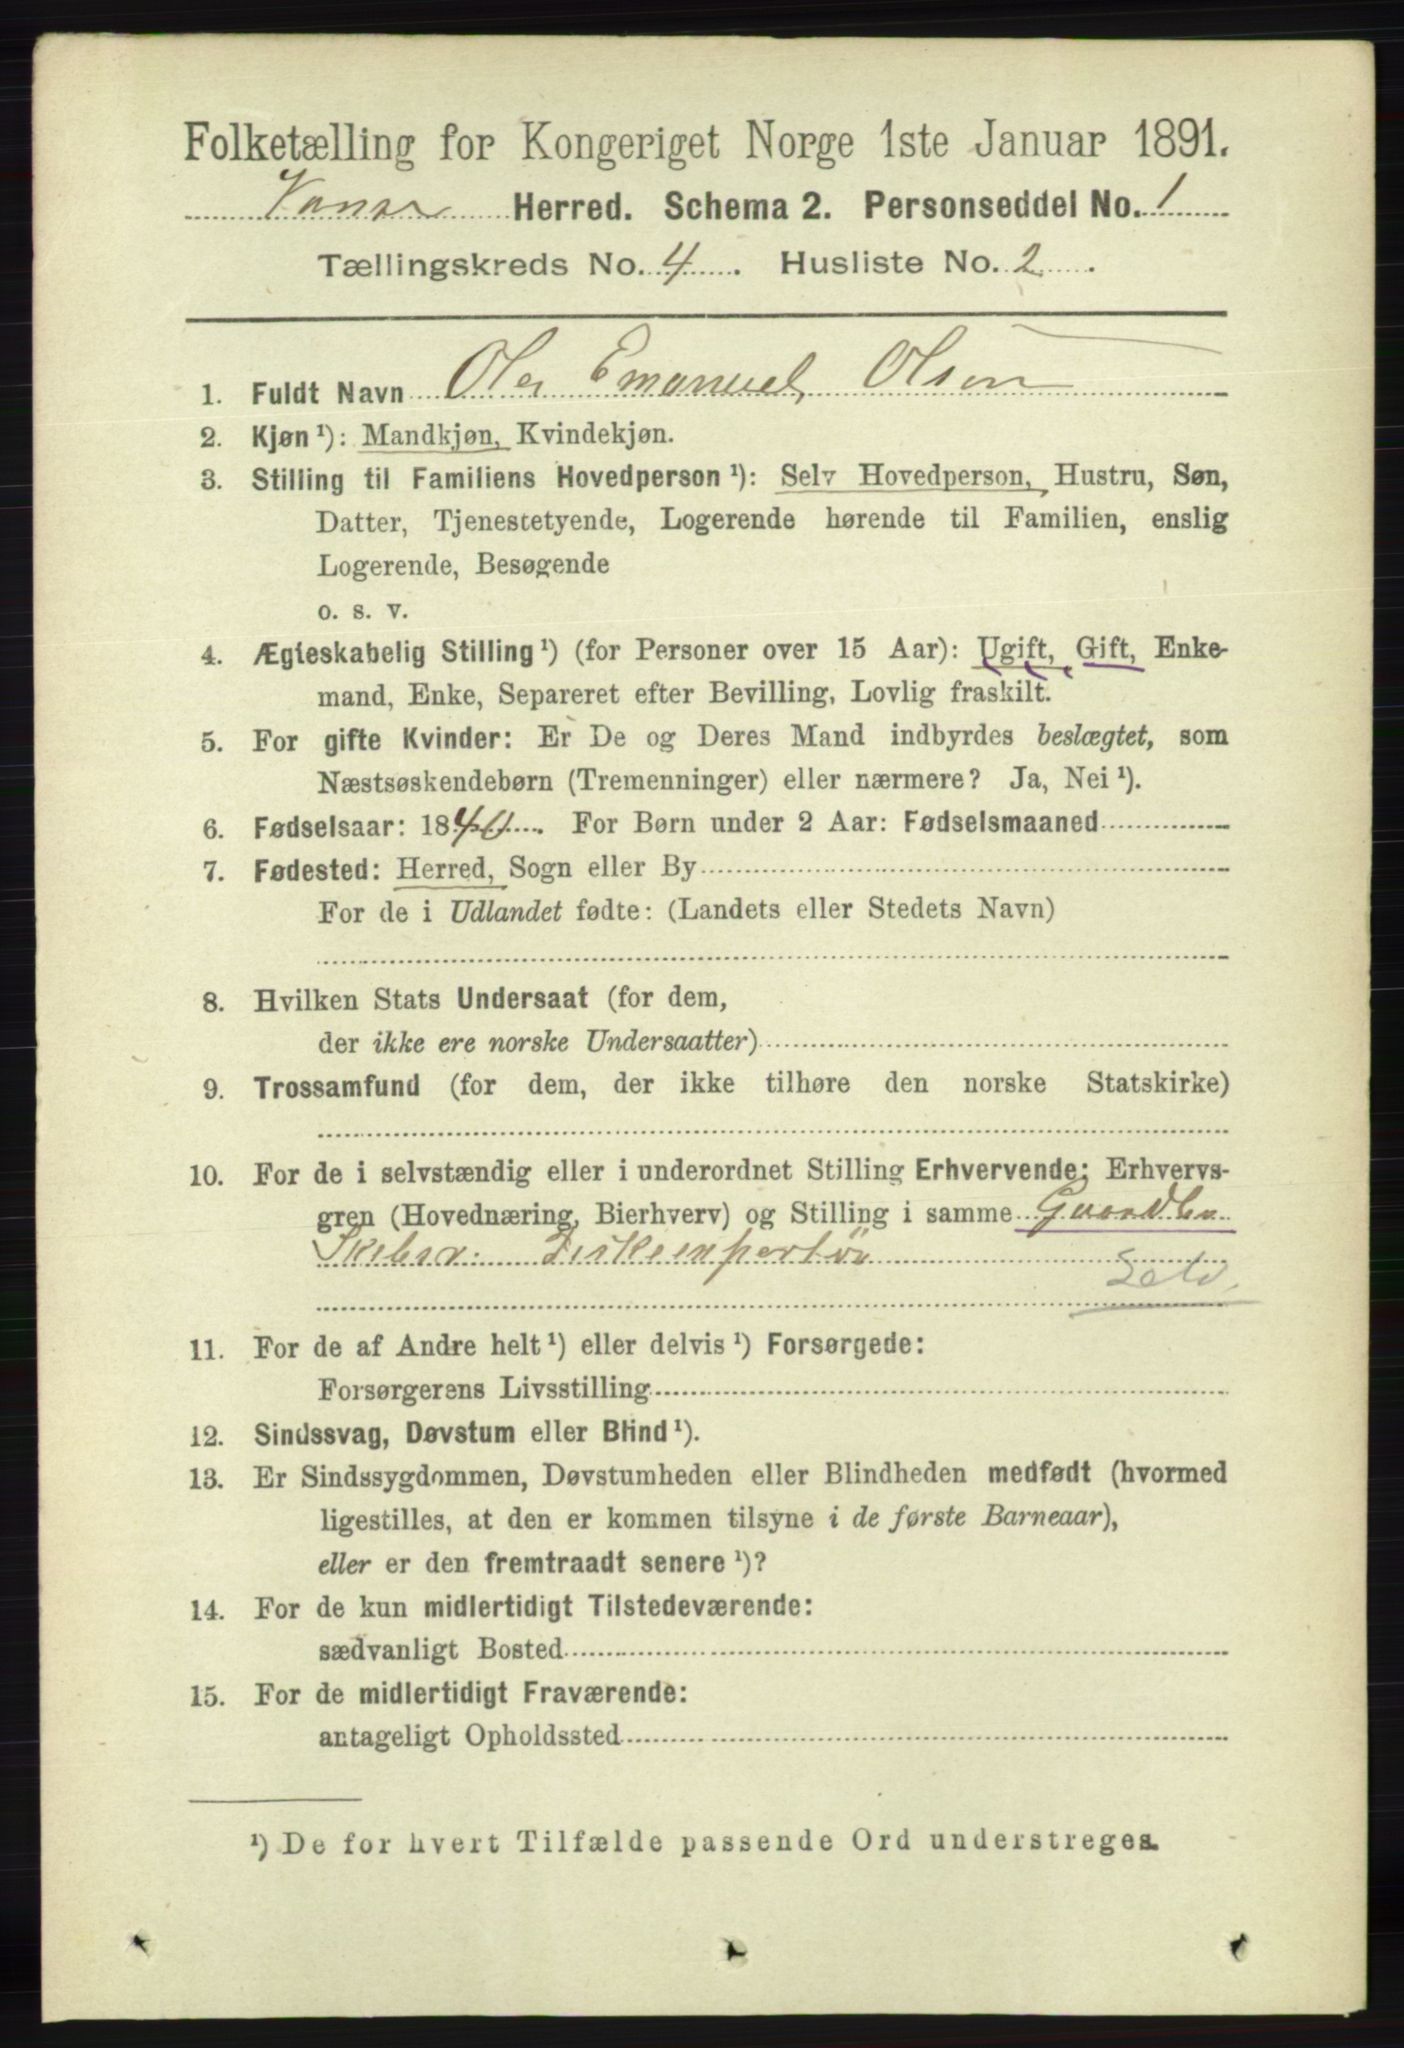 Folketælling for Kongeriget Norge 1ste Januar 1891.
Vanse Herred. Schema 2. Personseddel No. 1
Tællingskreds No. 4. Husliste No. 2.
1. Fuldt Navn Emanuel Olsen
2. Kjøn¹): Mandkjøn, Kvindekjøn.
3. Stilling til Familiens Hovedperson¹): Selv Hovedperson, Hustru, Søn,
Datter, Tjenestetyende, Logerende hørende til Familien, enslig
Logerende, Besøgende
o. s. v.
4. Ægteskabelig Stilling¹) (for Personer over 15 Aar): Ugift, Gift, Enke-
mand, Enke, Separeret efter Bevilling, Lovlig fraskilt.
5. For gifte Kvinder: Er De og Deres Mand indbyrdes beslægtet, som
Næstsøskendebørn (Tremenninger) eller nærmere? Ja, Nei¹).
6. Fødselsaar: 1840. For Børn under 2 Aar: Fødselsmaaned
7. Fødested: Herred, Sogn eller By
For de i Udlandet fødte: (Landets eller Stedets Navn)
8. Hvilken Stats Undersaat (for dem,
der ikke ere norske Undersaatter)
9. Trossamfund (for dem, der ikke tilhøre den norske Statskirke)
10. For de i selvstændig eller i underordnet Stilling Erhvervende: Erhvervs-
gren (Hovednæring, Bierhverv) og Stilling i samme Gaardbr
Selv.
11. For de af Andre helt¹) eller delvis¹) Forsørgede:
Forsørgerens Livsstilling
12. Sindssvag, Døvstum eller Blind¹).
13. Er Sindssygdommen, Døvstumheden eller Blindheden medfødt (hvormed
ligestilles, at den er kommen tilsyne i de første Barneaar),
eller er den fremtraadt senere¹)?
14. For de kun midlertidigt Tilstedeværende:
sædvanligt Bosted
15. For de midlertidigt Fraværende:
antageligt Opholdssted
¹) De for hvert Tilfælde passende Ord understreges.